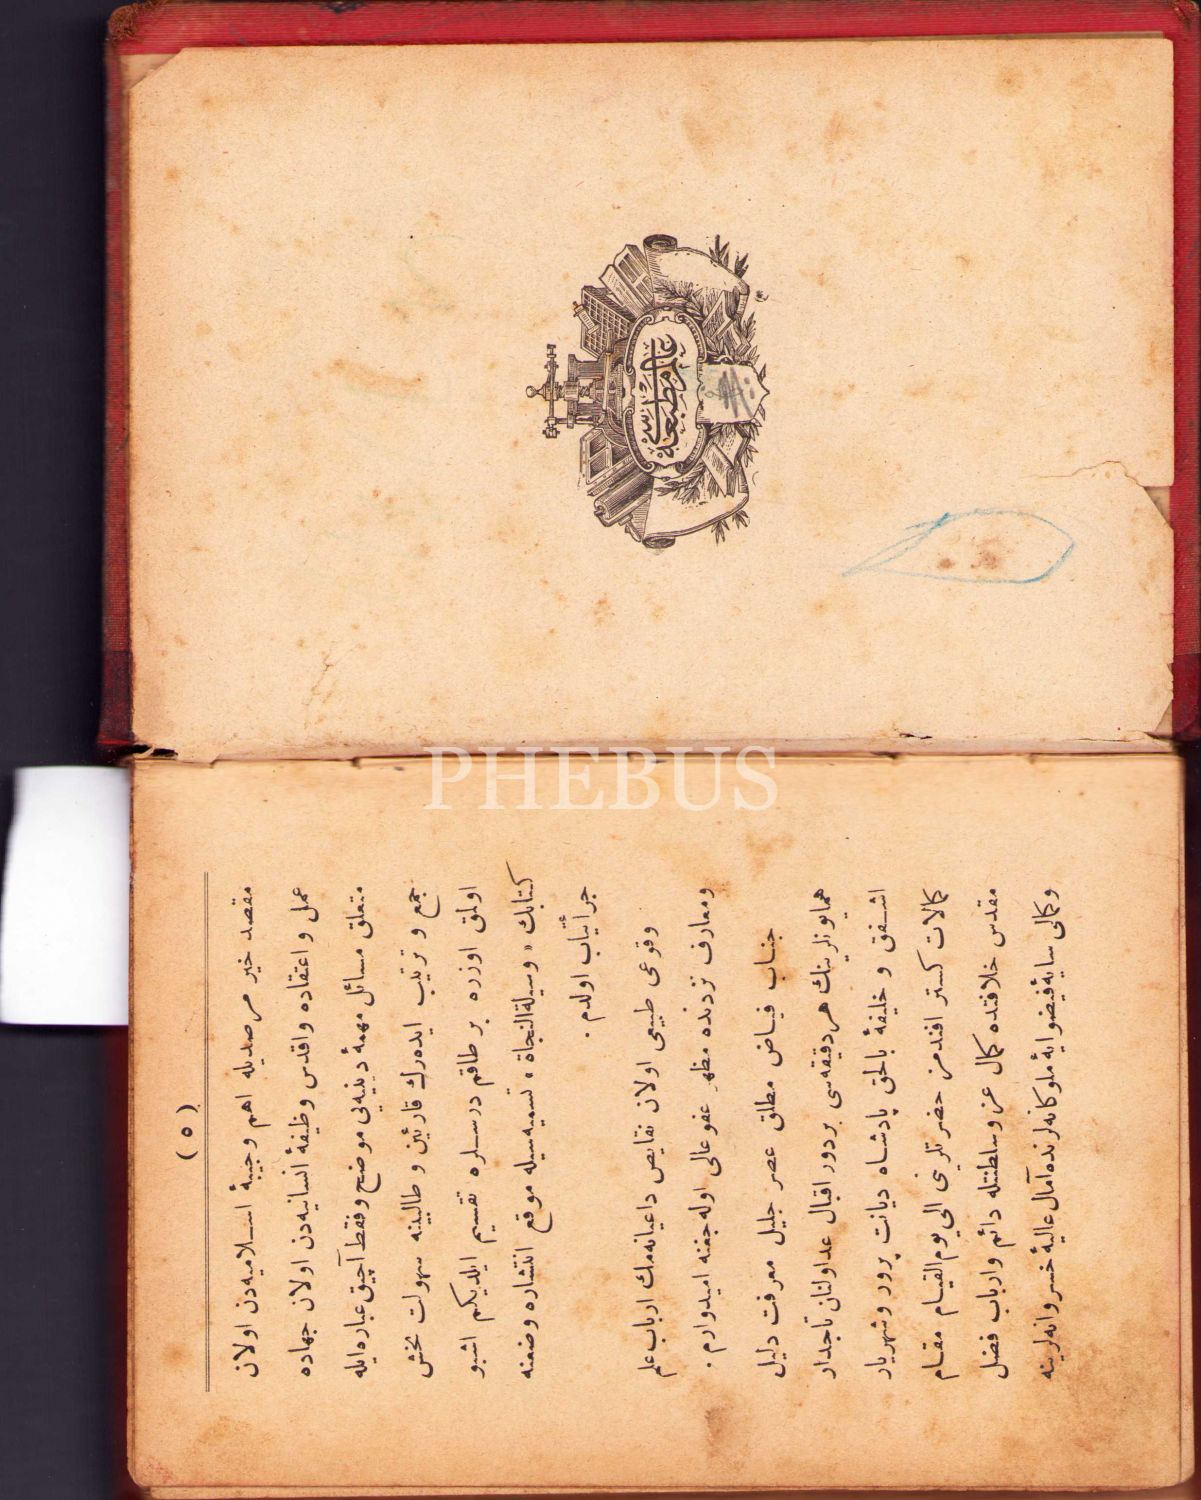 عالم مطبعه‌سی
PHEBUS
( ٥ )
مقصد خیر مرصدیله اهم وجیبهٔ اسلامیه‌دن اولان
عمل و اعتقاده واقدس وظیفهٔ انسانیه‌دن اولان جهاده
متعلق مسائل مهمهٔ دینیه‌یی موضح وفقط آچیق عباره ایله
جمع و ترتیب ایده‌رك قارئین و طالبینه سهولت بخش
اولمق اوزره بر طاقم درسلره تقسیم ایلدیکم اشبو
کتابك « وسیلة النجاة » تسمیه‌سیله موقع انتشاره وضعنه
جرأتیاب اولدم .
وقوعی طبیعی اولان نقایص داعیانه‌مك ارباب علم
ومعارف نزدنده مظهر عفو عالی اوله‌جغنه امیدوارم .
جناب فیاض مطلق عصر جلیل معرفت دلیل
همایونلرینك هر دقیقه‌سی بر دور اقبال عد اولنان تاجدار
اشفق و خلیفهٔ بالحق پادشاه دیانت پرور وشهریار
کمالات کستر افندمز حضرتلرینی الی یوم القیام مقام
مقدس خلافتده کمال عز وسلطنتله دائم وارباب فضل
وکمالی سایهٔ فیضوایهٔ ملوکانه‌لرنده آمال عالیهٔ خسروانه‌لرینه